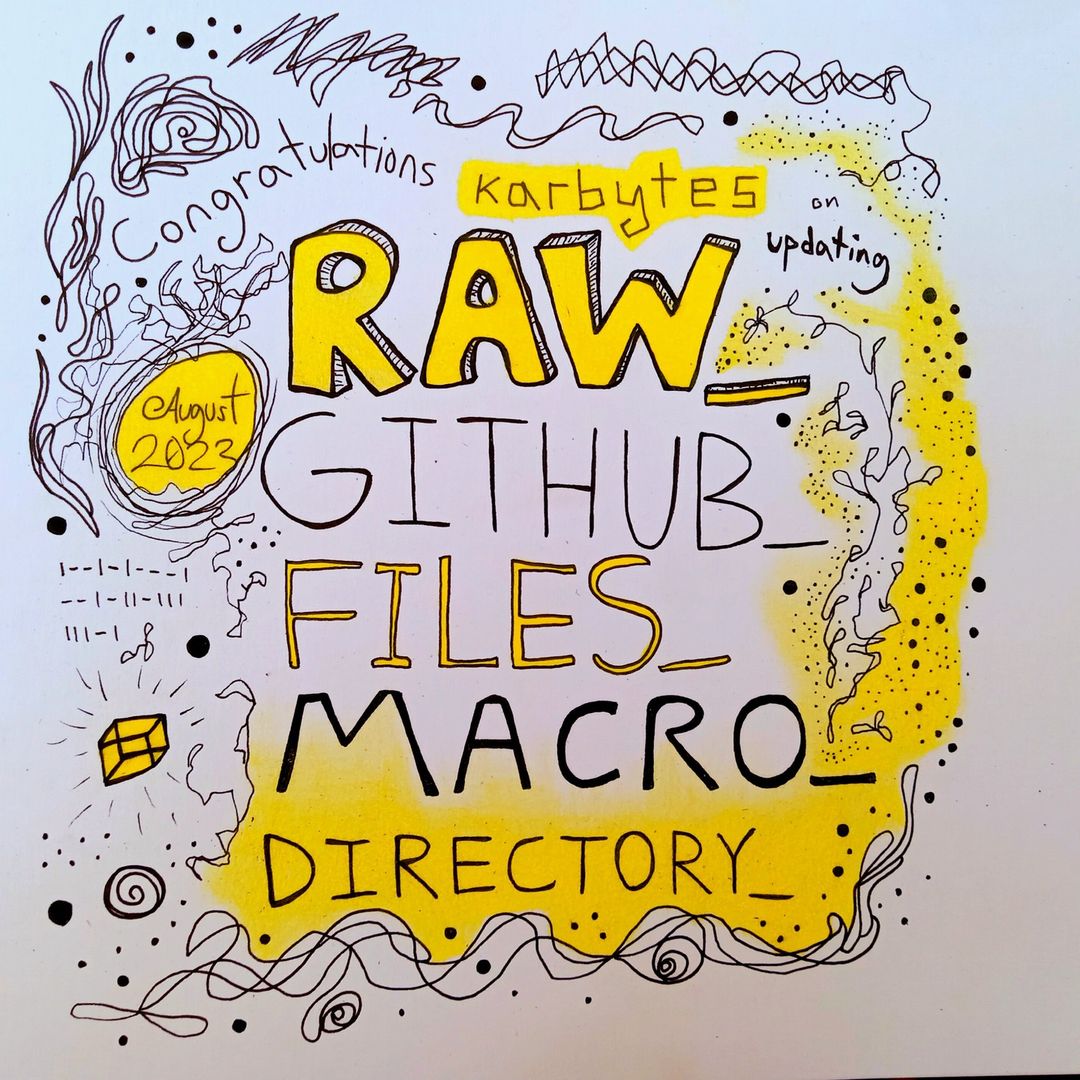 Congratulations
karbytes
on
updating
RAW_
GITHUB_
FILES_
MACRO_
DIRECTORY_
August
2023